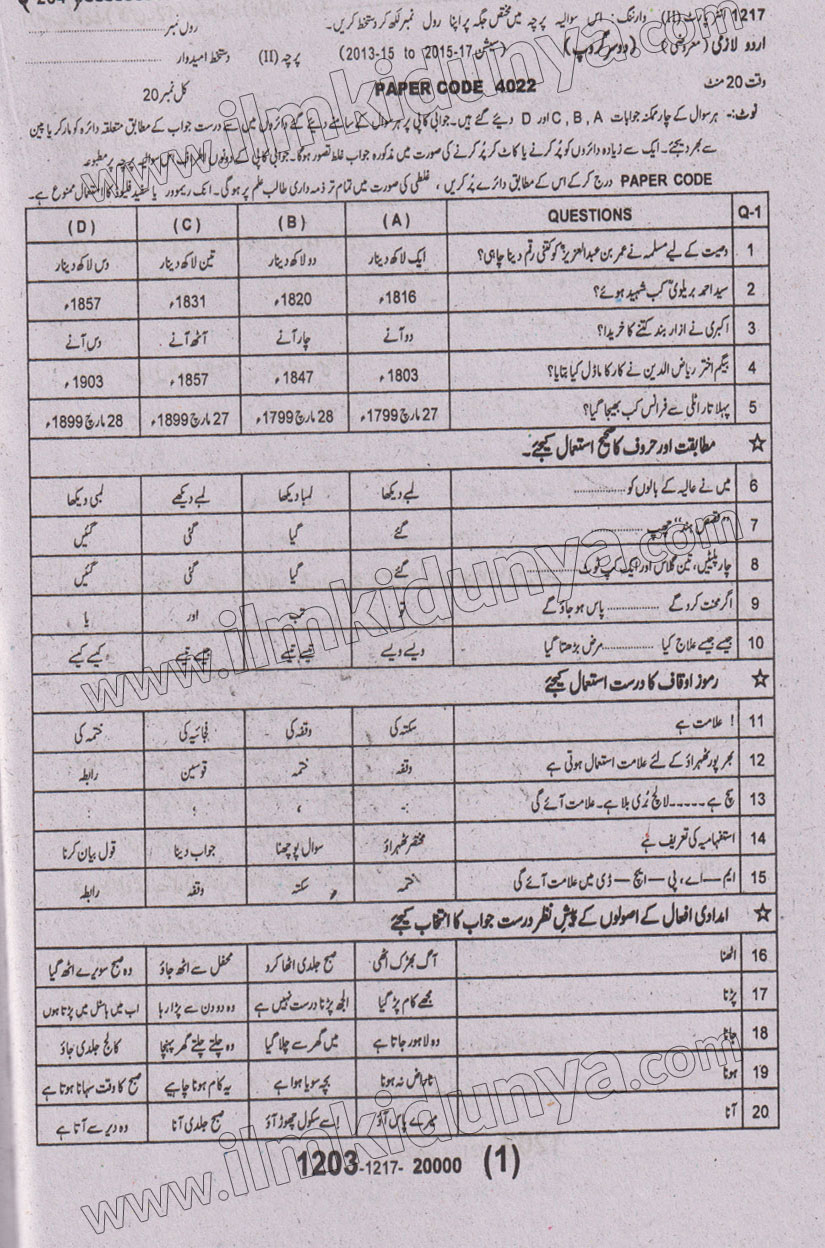 1217 انٹر پارٹ (II) وارننگ: اس سوالیہ پرچہ میں مختص جگہ پر اپنا رول نمبر لکھ کر دستخط کریں۔ رول نمبر
اردو لازمی (معروضی) (دوسرا گروپ) (سیشن 2013-15 to 2015-17) پرچہ (II) دستخط امیدوار
وقت 20 منٹ PAPER CODE 4022 کل نمبر 20
نوٹ:- ہر سوال کے چار ممکنہ جوابات A , B , C اور D دیے گئے ہیں۔ جوابی کاپی پر ہر سوال کے سامنے دیے گئے دائروں میں سے درست جواب کے مطابق متعلقہ دائرہ کو مارکر یا پین
سے بھر دیجئے۔ ایک سے زیادہ دائروں کو پُر کرنے یا کاٹ کر پُر کرنے کی صورت میں مذکورہ جواب غلط تصور ہوگا۔ جوابی کاپی کے دونوں اطراف اس سوالیہ پرچہ پر مطبوعہ
PAPER CODE درج کر کے اس کے مطابق دائرے پُر کریں ، غلطی کی صورت میں تمام تر ذمہ داری طالب علم پر ہوگی۔ انک ریموور یا سفید فلیوڈ کا استعمال ممنوع ہے۔
Q-1 QUESTIONS ( A ) ( B ) ( C ) ( D )
1 وصیت کے لیے مسلمہ نے عمر بن عبدالعزیز کو کتنی رقم دینا چاہی؟ ایک لاکھ دینار دو لاکھ دینار تین لاکھ دینار دس لاکھ دینار
2 سید احمد بریلوی کب شہید ہوئے؟ 1816ء 1820ء 1831ء 1857ء
3 اکبری نے ازار بند کتنے کا خریدا؟ دو آنے چار آنے آٹھ آنے دس آنے
4 بیگم اختر ریاض الدین نے کار کا ماڈل کیا بتایا؟ 1803ء 1847ء 1857ء 1903ء
5 پہلا تار اٹلی سے فرانس کب بھیجا گیا؟ 27 مارچ 1799ء 28 مارچ 1799ء 27 مارچ 1899ء 28 مارچ 1899ء
☆ مطابقت اور حروف کا صحیح استعمال کیجئے۔
6 میں نے عالیہ کے بالوں کو ............ لمبے دیکھا لمبا دیکھا لمبے دیکھے لمبی دیکھا
7 ’’قصص ہند‘‘ چھپ ............ گئے گیا گئی گئیں
8 چار پلیٹیں، تین گلاس اور ایک کپ ٹوٹ ............ گئے گیا گئی گئیں
9 اگر محنت کرو گے ............ پاس ہو جاؤ گے تو تب اور یا
10 جیسے جیسے علاج کیا ............ مرض بڑھتا گیا ویسے ویسے تیسے تیسے جیسے تیسے کیسے کیسے
☆ رموز اوقاف کا درست استعمال کیجئے
11 ! علامت ہے سکتہ کی وقفہ کی فجائیہ کی ختمہ کی
12 بھرپور ٹھہراؤ کے لئے علامت استعمال ہوتی ہے وقفہ ختمہ قوسین رابطہ
13 سچ ہے ----- لالچ بُری بلا ہے۔ علامت آئے گی :- ، ؛ :
14 استفہامیہ کی تعریف ہے مختصر ٹھہراؤ سوال پوچھنا جواب دینا قول بیان کرنا
15 ایم — اے، پی — ایچ — ڈی میں علامت آئے گی ختمہ سکتہ وقفہ رابطہ
☆ امدادی افعال کے اصولوں کے پیشِ نظر درست جواب کا انتخاب کیجئے
16 اٹھنا آگ بھڑک اٹھی صبح جلدی اٹھا کرو محفل سے اٹھ جاؤ وہ صبح سویرے اٹھ گیا
17 پڑنا مجھے کام پڑ گیا الجھ پڑنا درست نہیں ہے وہ دو دن سے پڑا رہا اب میں ہاسٹل میں پڑتا ہوں
18 جانا وہ لاہور جاتا ہے میں گھر سے چلا گیا وہ چلتے چلتے گھر پہنچا کالج جلدی جاؤ
19 ہونا ناراض نہ ہونا بچہ سویا ہوا ہے یہ کام ہونا چاہیے صبح کا وقت سہانا ہوتا ہے
20 آنا میرے پاس آؤ اسے سکول چھوڑ آؤ صبح جلدی آنا وہ دیر سے آتا ہے
1203-1217- 20000 (1)
www.ilmkidunya.com
www.ilmkidunya.com
www.ilmkidunya.com